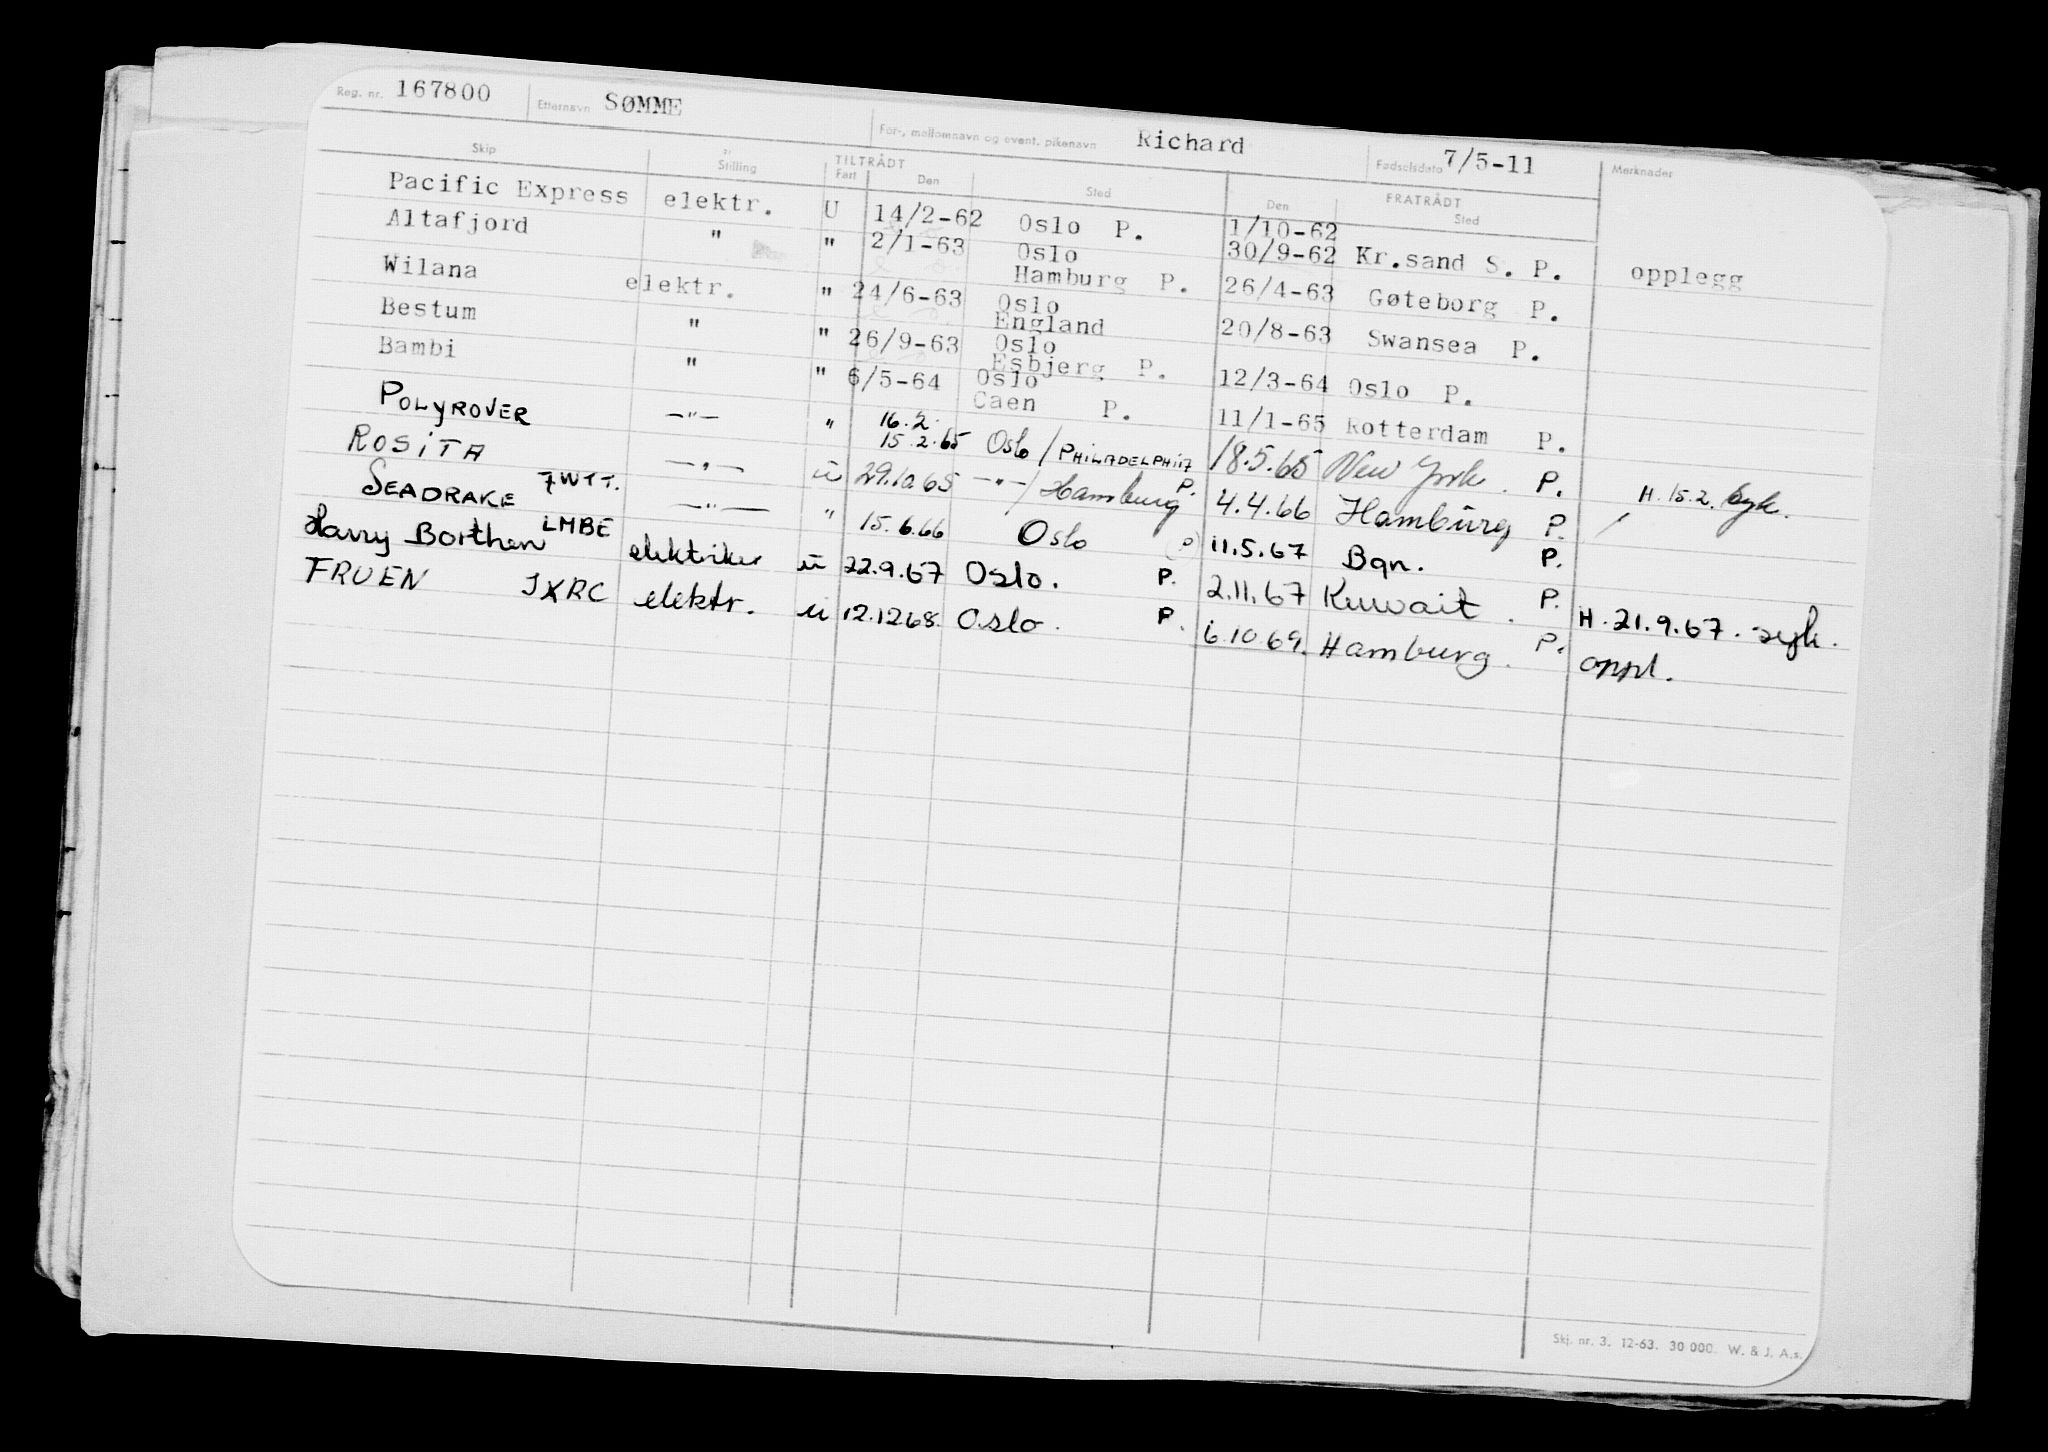 Reg. nr. 167800 Etternavn SØMME For-, mellomnavn og event. pikenavn Richard Fødselsdato 7/5-11 Merknader
Skip Stilling TILTRÅDT Fart Den Sted FRATRÅDT Den Sted
Pacific Express elektr. U 14/2-62 Oslo P. 1/10-62
30/9-62 Kr.sand S. P. opplegg
Altafjord " " 2/1-63 Oslo
Hamburg P. 26/4-63 Gøteborg P.
Wilana elektr. " 24/6-63 Oslo
England 20/8-63 Swansea P.
Bestum " " 26/9-63 Oslo
Esbjerg P. 12/3-64 Oslo P.
Bambi " " 6/5-64 Oslo
Caen P. 11/1-65 Rotterdam P.
POLYROVER —"— " 16.2.
15.2.65 Oslo / PHILADELPHIA P. 18.5.65 New York. P. H. 15.2. syk.
ROSITA —"— u 29.10.65 —"— / Hamburg 4.4.66 Hamburg P.
SEADRAKE 7WTT. —"— " 15.6.66 Oslo (P) 11.5.67 Bgn. P.
Harry Borthen LMBE elektriker u 22.9.67 Oslo. P. 2.11.67 Kuwait. P. H. 21.9.67. syk.
FRUEN JXRC elektr. u 12.12.68. Oslo. P. 6.10.69. Hamburg. P. oppl.
Skj. nr. 3. 12-63. 30 000. W. & J. A.s.